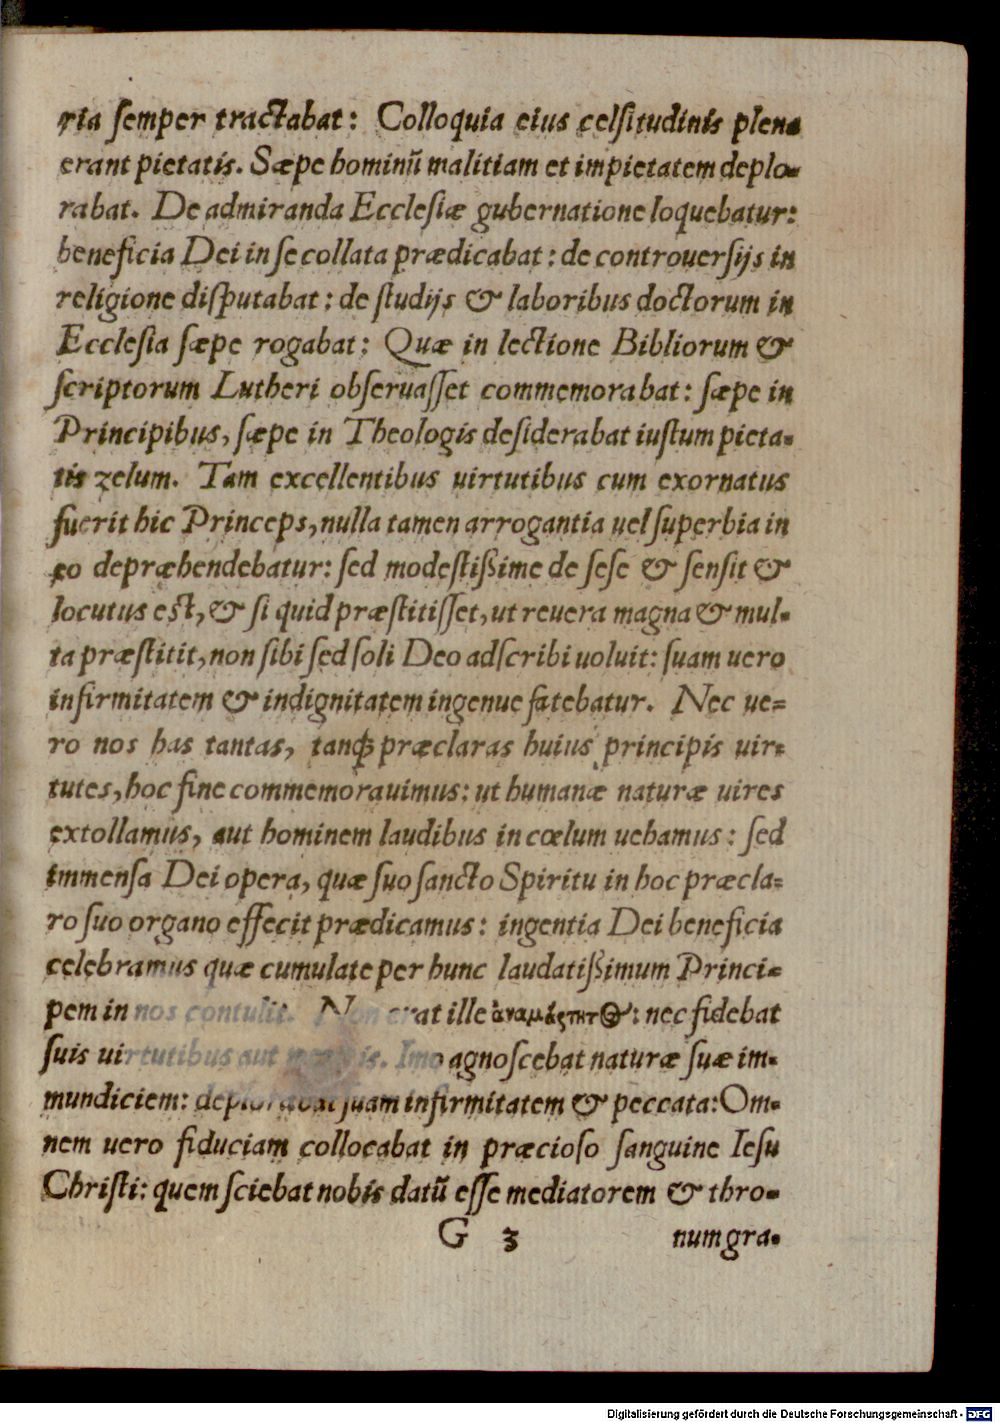 ria semper tractabat: Colloquia eius celsitudinis plena
erant pietatis. Sæpe hominũ malitiam et impietatem deplo-
rabat. De admiranda Ecclesiæ gubernatione loquebatur:
beneficia Dei in se collata prædicabat: de controuersijs in
religione disputabat: de studijs & laboribus doctorum in
Ecclesia sæpe rogabat: Quæ in lectione Bibliorum &
scriptorum Lutheri obseruasset commemorabat: sæpe in
Principibus, sæpe in Theologis desiderabat iustum pieta-
tis zelum. Tam excellentibus uirtutibus cum exornatus
fuerit hic Princeps, nulla tamen arrogantia uel superbia in
eo depræhendebatur: sed modestißime de sese & sensit &
locutus est, & si quid præstitisset, ut reuera magna & mul-
ta præstitit, non sibi sed soli Deo adscribi uoluit: suam uero
infirmitatem & indignitatem ingenue fatebatur. Nec ue-
ro nos has tantas, tanꝗ præclaras huius principis uir-
tutes, hoc fine commemorauimus: ut humanæ naturæ uires
extollamus, aut hominem laudibus in cœlum uehamus: sed
immensa Dei opera, quæ suo sancto Spiritu in hoc præcla-
ro suo organo effecit prædicamus: ingentia Dei beneficia
celebramus quæ cumulate per hunc laudatißimum Princi-
pem in nos contulit. Non erat ille ἀναμάρτητος: nec fidebat
suis uirtutibus aut Imo agnoscebat naturæ suæ im-
mundiciem: deplorabat suam infirmitatem & peccata: Om-
nem uero fiduciam collocabat in præcioso sanguine Iesu
Christi: quem sciebat nobis datũ esse mediatorem & thro-
G 3 num gra-
Digitalisierung gefördert durch die Deutsche Forschungsgemeinschaft - DFG